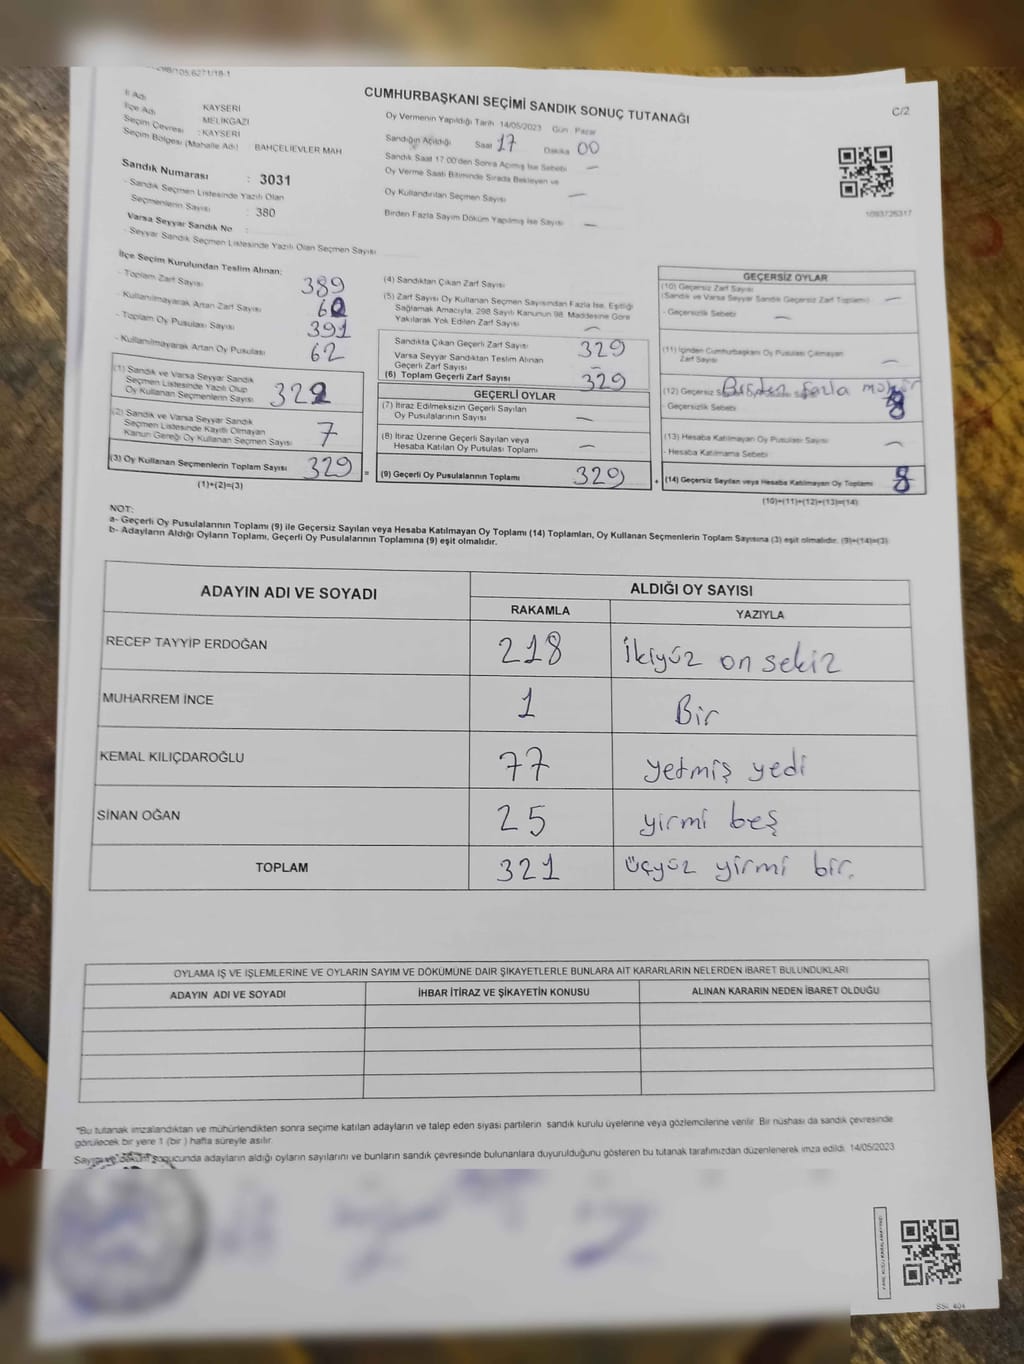 CUMHURBAŞKANI SEÇİMİ SANDIK SONUÇ TUTANAĞI
C/2
İl Adı
İlçe Adı
Seçim Çevresi
Seçim Bölgesi (Mahalle Adı)
KAYSERİ
MELİKGAZİ
: KAYSERİ
BAHÇELİEVLER MAH
Sandık Numarası : 3031
- Sandık Seçmen Listesinde Yazılı Olan
Seçmenlerin Sayısı : 380
Varsa Seyyar Sandık No :
- Seyyar Sandık Seçmen Listesinde Yazılı Olan Seçmen Sayısı
Oy Vermenin Yapıldığı Tarih 14/05/2023 Gün : Pazar
Sandığın Açıldığı Saat 17 Dakika 00
Sandık Saat 17.00'den Sonra Açılmış İse Sebebi —
Oy Verme Saati Bitiminde Sırada Bekleyen ve
Oy Kullandırılan Seçmen Sayısı —
Birden Fazla Sayım Döküm Yapılmış İse Sayısı —
1093726317
İlçe Seçim Kurulundan Teslim Alınan:
- Toplam Zarf Sayısı 389
- Kullanılmayarak Artan Zarf Sayısı
- Toplam Oy Pusulası Sayısı 391
- Kullanılmayarak Artan Oy Pusulası 62
(1) Sandık ve Varsa Seyyar Sandık
Seçmen Listesinde Yazılı Olup
Oy Kullanan Seçmenlerin Sayısı 322
(2) Sandık ve Varsa Seyyar Sandık
Seçmen Listesinde Kayıtlı Olmayan
Kanun Gereği Oy Kullanan Seçmen Sayısı 7
(3) Oy Kullanan Seçmenlerin Toplam Sayısı 329 =
(1)+(2)=(3)
(4) Sandıktan Çıkan Zarf Sayısı
(5) Zarf Sayısı Oy Kullanan Seçmen Sayısından Fazla İse, Eşitliği
Sağlamak Amacıyla, 298 Sayılı Kanunun 98. Maddesine Göre
Yakılarak Yok Edilen Zarf Sayısı —
Sandıkta Çıkan Geçerli Zarf Sayısı 329
Varsa Seyyar Sandıktan Teslim Alınan
Geçerli Zarf Sayısı —
(6) Toplam Geçerli Zarf Sayısı 329
GEÇERLİ OYLAR
(7) İtiraz Edilmeksizin Geçerli Sayılan
Oy Pusulalarının Sayısı —
(8) İtiraz Üzerine Geçerli Sayılan veya
Hesaba Katılan Oy Pusulası Toplamı —
(9) Geçerli Oy Pusulalarının Toplamı 329 +
GEÇERSİZ OYLAR
(10) Geçersiz Zarf Sayısı
(Sandık ve Varsa Seyyar Sandık Geçersiz Zarf Toplamı) —
- Geçersizlik Sebebi —
(11) İçinden Cumhurbaşkanı Oy Pusulası Çıkmayan
Zarf Sayısı —
(12) Geçersiz Birden fazla mühür
- Geçersizlik Sebebi 8
(13) Hesaba Katılmayan Oy Pusulası Sayısı —
- Hesaba Katılmama Sebebi
(14) Geçersiz Sayılan veya Hesaba Katılmayan Oy Toplamı 8
(10)+(11)+(12)+(13)=(14)
NOT:
a- Geçerli Oy Pusulalarının Toplamı (9) ile Geçersiz Sayılan veya Hesaba Katılmayan Oy Toplamı (14) Toplamları, Oy Kullanan Seçmenlerin Toplam Sayısına (3) eşit olmalıdır. (9)+(14)=(3)
b- Adayların Aldığı Oyların Toplamı, Geçerli Oy Pusulalarının Toplamına (9) eşit olmalıdır.
ADAYIN ADI VE SOYADI
ALDIĞI OY SAYISI
RAKAMLA YAZIYLA
RECEP TAYYİP ERDOĞAN 218 İkiyüz on sekiz
MUHARREM İNCE 1 Bir
KEMAL KILIÇDAROĞLU 77 yetmiş yedi
SİNAN OĞAN 25 yirmi beş
TOPLAM 321 üçyüz yirmi bir.
OYLAMA İŞ VE İŞLEMLERİNE VE OYLARIN SAYIM VE DÖKÜMÜNE DAİR ŞİKAYETLERLE BUNLARA AİT KARARLARIN NELERDEN İBARET BULUNDUKLARI
ADAYIN ADI VE SOYADI İHBAR İTİRAZ VE ŞİKAYETİN KONUSU ALINAN KARARIN NEDEN İBARET OLDUĞU
*Bu tutanak imzalandıktan ve mühürlendikten sonra seçime katılan adayların ve talep eden siyasi partilerin sandık kurulu üyelerine veya gözlemcilerine verilir. Bir nüshası da sandık çevresinde
görülecek bir yere 1 (bir ) hafta süreyle asılır.
Sayım ve döküm sonucunda adayların aldığı oyların sayılarını ve bunların sandık çevresinde bulunanlara duyurulduğunu gösteren bu tutanak tarafımızdan düzenlenerek imza edildi. 14/05/2023